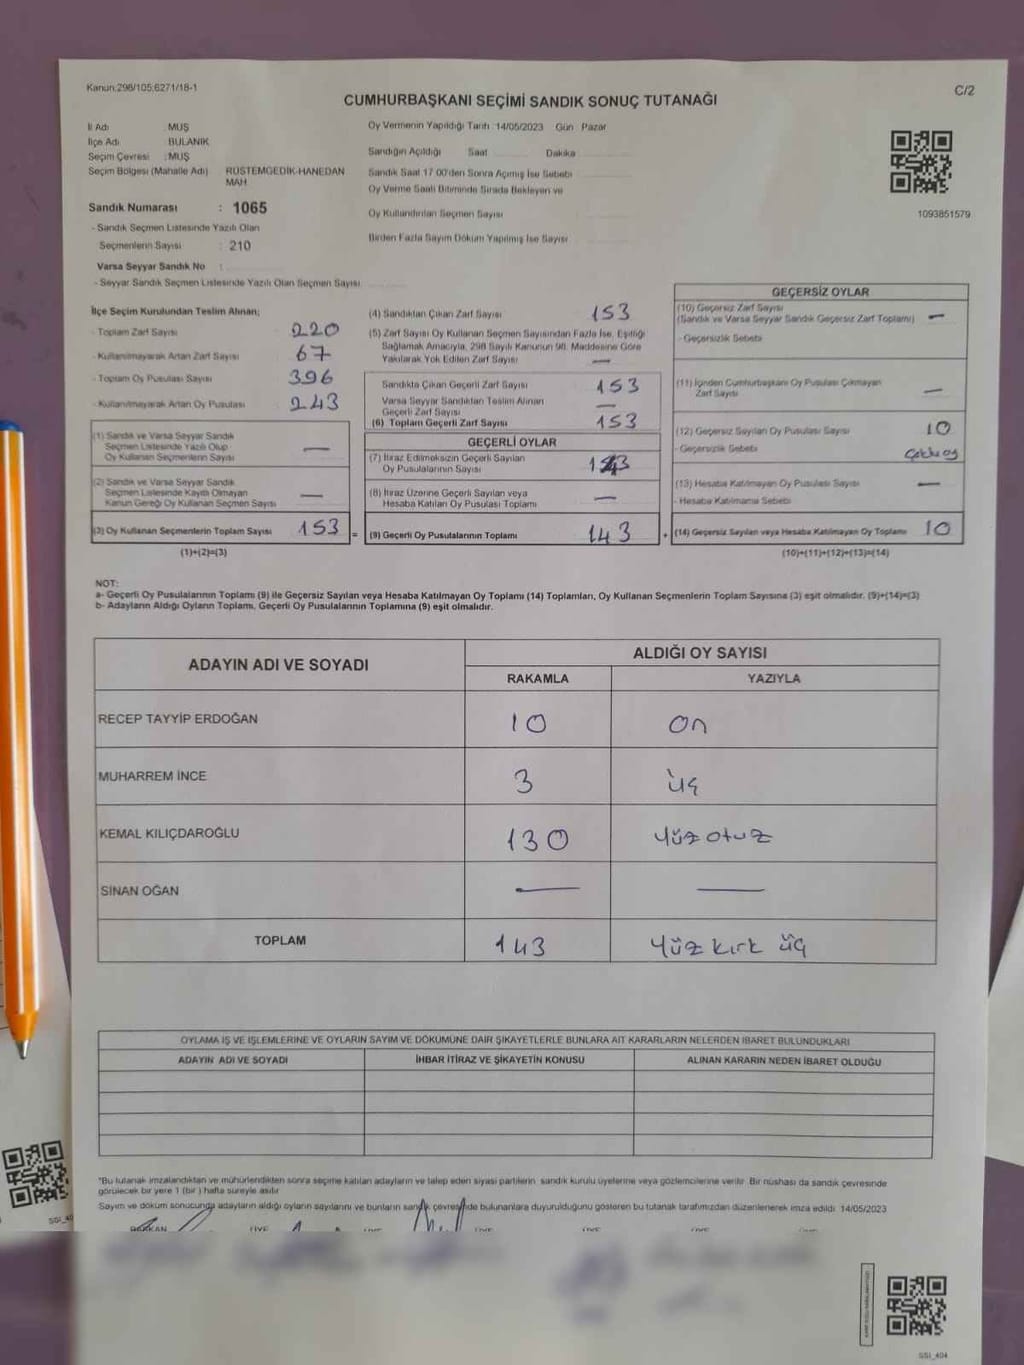 Kanun:298/105;6271/18-1
C/2
CUMHURBAŞKANI SEÇİMİ SANDIK SONUÇ TUTANAĞI
İl Adı : MUŞ
İlçe Adı : BULANIK
Seçim Çevresi : MUŞ
Seçim Bölgesi (Mahalle Adı) RÜSTEMGEDİK-HANEDAN MAH
Sandık Numarası : 1065
- Sandık Seçmen Listesinde Yazılı Olan
Seçmenlerin Sayısı : 210
Varsa Seyyar Sandık No :
- Seyyar Sandık Seçmen Listesinde Yazılı Olan Seçmen Sayısı
Oy Vermenin Yapıldığı Tarih :14/05/2023 Gün Pazar
Sandığın Açıldığı Saat Dakika
Sandık Saat 17:00'den Sonra Açımış İse Sebebi
Oy Verme Saati Bitiminde Sırada Bekleyen ve
Oy Kullandırılan Seçmen Sayısı
Birden Fazla Sayım Döküm Yapılmış İse Sayısı
1093851579
İlçe Seçim Kurulundan Teslim Alınan;
- Toplam Zarf Sayısı 220
- Kullanılmayarak Artan Zarf Sayısı 67
- Toplam Oy Pusulası Sayısı 396
- Kullanılmayarak Artan Oy Pusulası 243
(1) Sandık ve Varsa Seyyar Sandık
Seçmen Listesinde Yazılı Olup
Oy Kullanan Seçmenlerin Sayısı —
(2) Sandık ve Varsa Seyyar Sandık
Seçmen Listesinde Kayıtlı Olmayan
Kanun Gereği Oy Kullanan Seçmen Sayısı —
(3) Oy Kullanan Seçmenlerin Toplam Sayısı 153
(1)+(2)=(3)
(4) Sandıktan Çıkan Zarf Sayısı 153
(5) Zarf Sayısı Oy Kullanan Seçmen Sayısından Fazla İse, Eşitliği
Sağlamak Amacıyla, 298 Sayılı Kanunun 98. Maddesine Göre
Yakılarak Yok Edilen Zarf Sayısı —
Sandıkta Çıkan Geçerli Zarf Sayısı 153
Varsa Seyyar Sandıktan Teslim Alınan
Geçerli Zarf Sayısı —
(6) Toplam Geçerli Zarf Sayısı 153
GEÇERLİ OYLAR
(7) İtiraz Edilmeksizin Geçerli Sayılan
Oy Pusulalarının Sayısı 143
(8) İtiraz Üzerine Geçerli Sayılan veya
Hesaba Katılan Oy Pusulası Toplamı —
= (9) Geçerli Oy Pusulalarının Toplamı 143
GEÇERSİZ OYLAR
(10) Geçersiz Zarf Sayısı
(Sandık ve Varsa Seyyar Sandık Geçersiz Zarf Toplamı) —
- Geçersizlik Sebebi
(11) İçinden Cumhurbaşkanı Oy Pusulası Çıkmayan
Zarf Sayısı —
(12) Geçersiz Sayılan Oy Pusulası Sayısı 10
- Geçersizlik Sebebi
(13) Hesaba Katılmayan Oy Pusulası Sayısı —
- Hesaba Katılmama Sebebi
+ (14) Geçersiz Sayılan veya Hesaba Katılmayan Oy Toplamı 10
(10)+(11)+(12)+(13)=(14)
NOT:
a- Geçerli Oy Pusulalarının Toplamı (9) ile Geçersiz Sayılan veya Hesaba Katılmayan Oy Toplamı (14) Toplamları, Oy Kullanan Seçmenlerin Toplam Sayısına (3) eşit olmalıdır. (9)+(14)=(3)
b- Adayların Aldığı Oyların Toplamı, Geçerli Oy Pusulalarının Toplamına (9) eşit olmalıdır.
ADAYIN ADI VE SOYADI ALDIĞI OY SAYISI
RAKAMLA YAZIYLA
RECEP TAYYİP ERDOĞAN 10 on
MUHARREM İNCE 3 üç
KEMAL KILIÇDAROĞLU 130 yüz otuz
SİNAN OĞAN — —
TOPLAM 143 Yüz kırk üç
OYLAMA İŞ VE İŞLEMLERİNE VE OYLARIN SAYIM VE DÖKÜMÜNE DAİR ŞİKAYETLERLE BUNLARA AİT KARARLARIN NELERDEN İBARET BULUNDUKLARI
ADAYIN ADI VE SOYADI İHBAR İTİRAZ VE ŞİKAYETİN KONUSU ALINAN KARARIN NEDEN İBARET OLDUĞU
*Bu tutanak imzalandıktan ve mühürlendikten sonra seçime katılan adayların ve talep eden siyasi partilerin sandık kurulu üyelerine veya gözlemcilerine verilir. Bir nüshası da sandık çevresinde
görülecek bir yere 1 (bir) hafta süreyle asılır
Sayım ve döküm sonucunda adayların aldığı oyların sayılarını ve bunların sandık çevresinde bulunanlara duyurulduğunu gösteren bu tutanak tarafımızdan düzenlenerek imza edildi. 14/05/2023